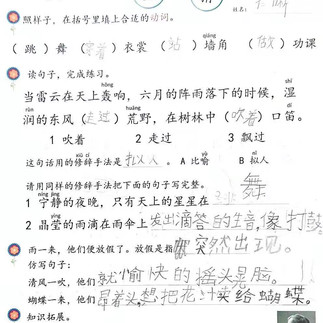 照样子，在括号里填上合适的动词。
（跳）舞（穿着）衣裳（站）墙角（做）功课
读句子，完成练习。
hōng shī
当雷云在天上轰响，六月的阵雨落下的时候，湿
rùn huāng dí
润的东风（走过）荒野，在树林中（吹着）口笛。
1 吹着 2 走过 3 飘过
xiū cí nǐ
这句话用的修辞手法是拟人。A 比喻 B 拟人
请用同样的修辞手法把下面的句子写完整。舞
níng jìng
1 宁静的夜晚，只有天上的星星在
jīng yíng
2 晶莹的雨滴在雨伞上发出滴答的声音，像打鼓
雨一来，他们便放假了。放假是指突然出现。
仿写句子：
清风一吹，他们就愉快的摇头晃脑。
蝴蝶一来，他们冒着头，想把花汁买给蝴蝶。
知识拓展。